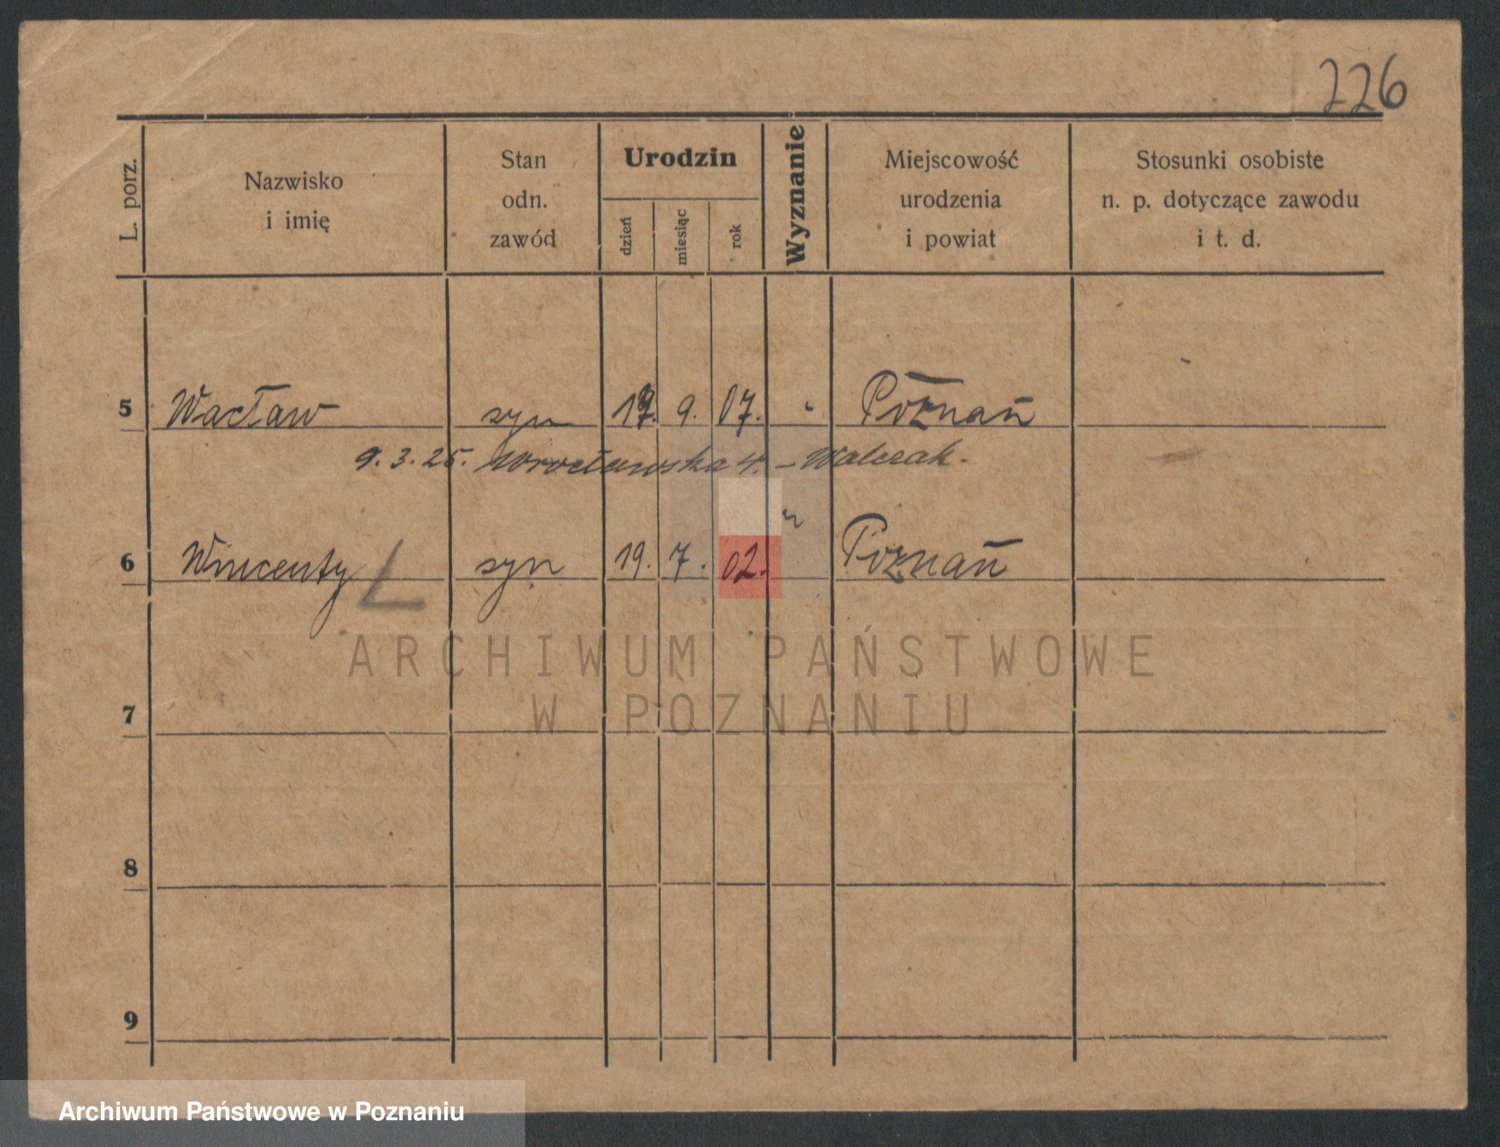 226
L. porz.
Nazwisko
i imię
Stan
odn.
zawód
Urodzin
dzień
miesiąc
rok
Wyznanie
Miejscowość
urodzenia
i powiat
Stosunki osobiste
n. p. dotyczące zawodu
i t. d.
5 Wacław syn 9. 07. Poznań
9.3.25. Wrocławska 4. – Walczak.
6 Wincenty syn 19. 7. 02. Poznań
ARCHIWUM PAŃSTWOWE
W POZNANIU
7
8
9
Archiwum Państwowe w Poznaniu